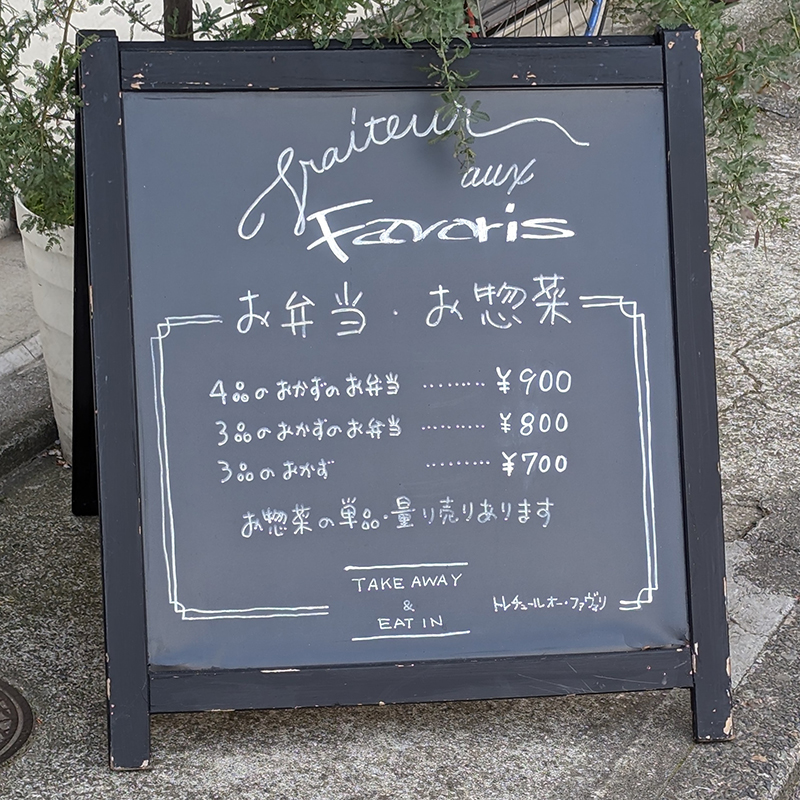 Traiteur
aux
Favoris
お弁当・お惣菜
4品のおかずのお弁当 ........ ¥900
3品のおかずのお弁当 ......... ¥800
3品のおかず ......... ¥700
お惣菜の単品・量り売りあります
TAKE AWAY
&
EAT IN
トレチュールオー・ファヴォリ